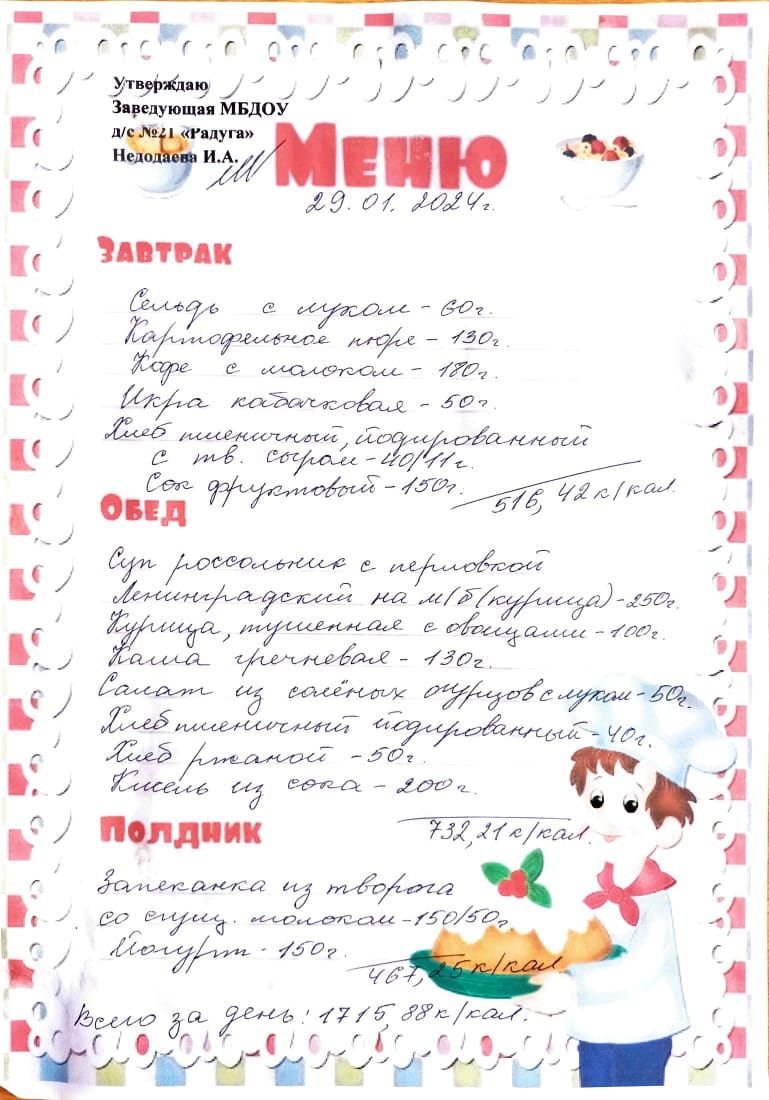 Утверждаю
Заведующая МБДОУ
д/с №21 «Радуга»
Недодаева И.А.
Меню
29.01.2024г.
Завтрак
Сельдь с луком - 60г.
Картофельное пюре - 130г.
Кофе с молоком - 180г.
Икра кабачковая - 50г.
Хлеб пшеничный, йодированный
с тв. сыром - 40/11г.
Сок фруктовый - 150г.
516,42 к/кал.
Обед
Суп россольник с перловкой
Ленинградский на м/б (курица) - 250г.
Курица, тушенная с овощами - 100г.
Каша гречневая - 130г.
Салат из солёных огурцов с луком - 50г.
Хлеб пшеничный йодированный - 40г.
Хлеб ржаной - 50г.
Кисель из сока - 200г.
732,21 к/кал.
Полдник
Запеканка из творога
со сгущ. молоком - 150/50г
Йогурт - 150г.
467,25 к/кал
Всего за день: 1715,88 к/кал.